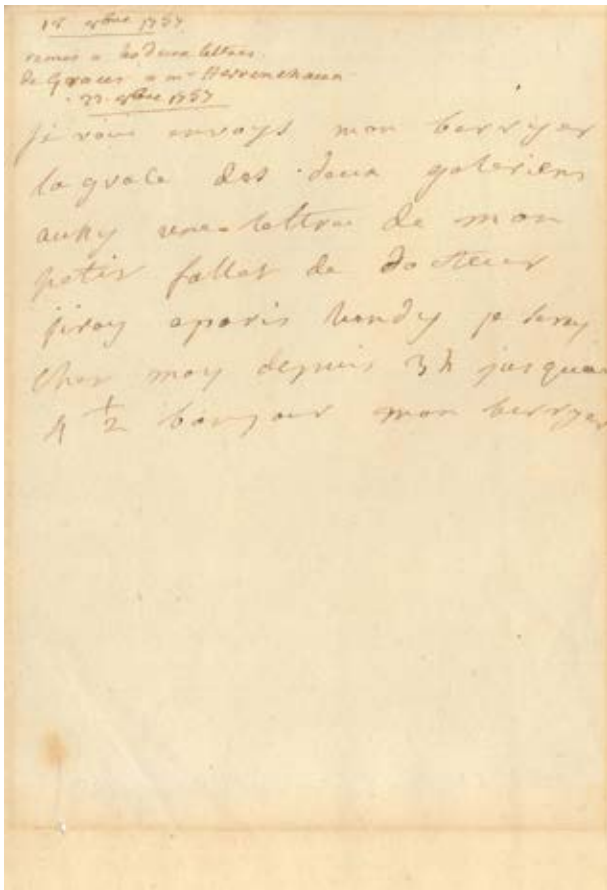 18 9bre 1757
remis les deux lettres
de Graces a mr
22 9bre 1757
je vous envoye mon berryer
la grace des deux galeriens
aussy une lettre de mon
petit fallet de docteur
jiray a paris lundy je seray
chez moy depuis 3 h jusqua
4 1/2 bonjour mon berryer